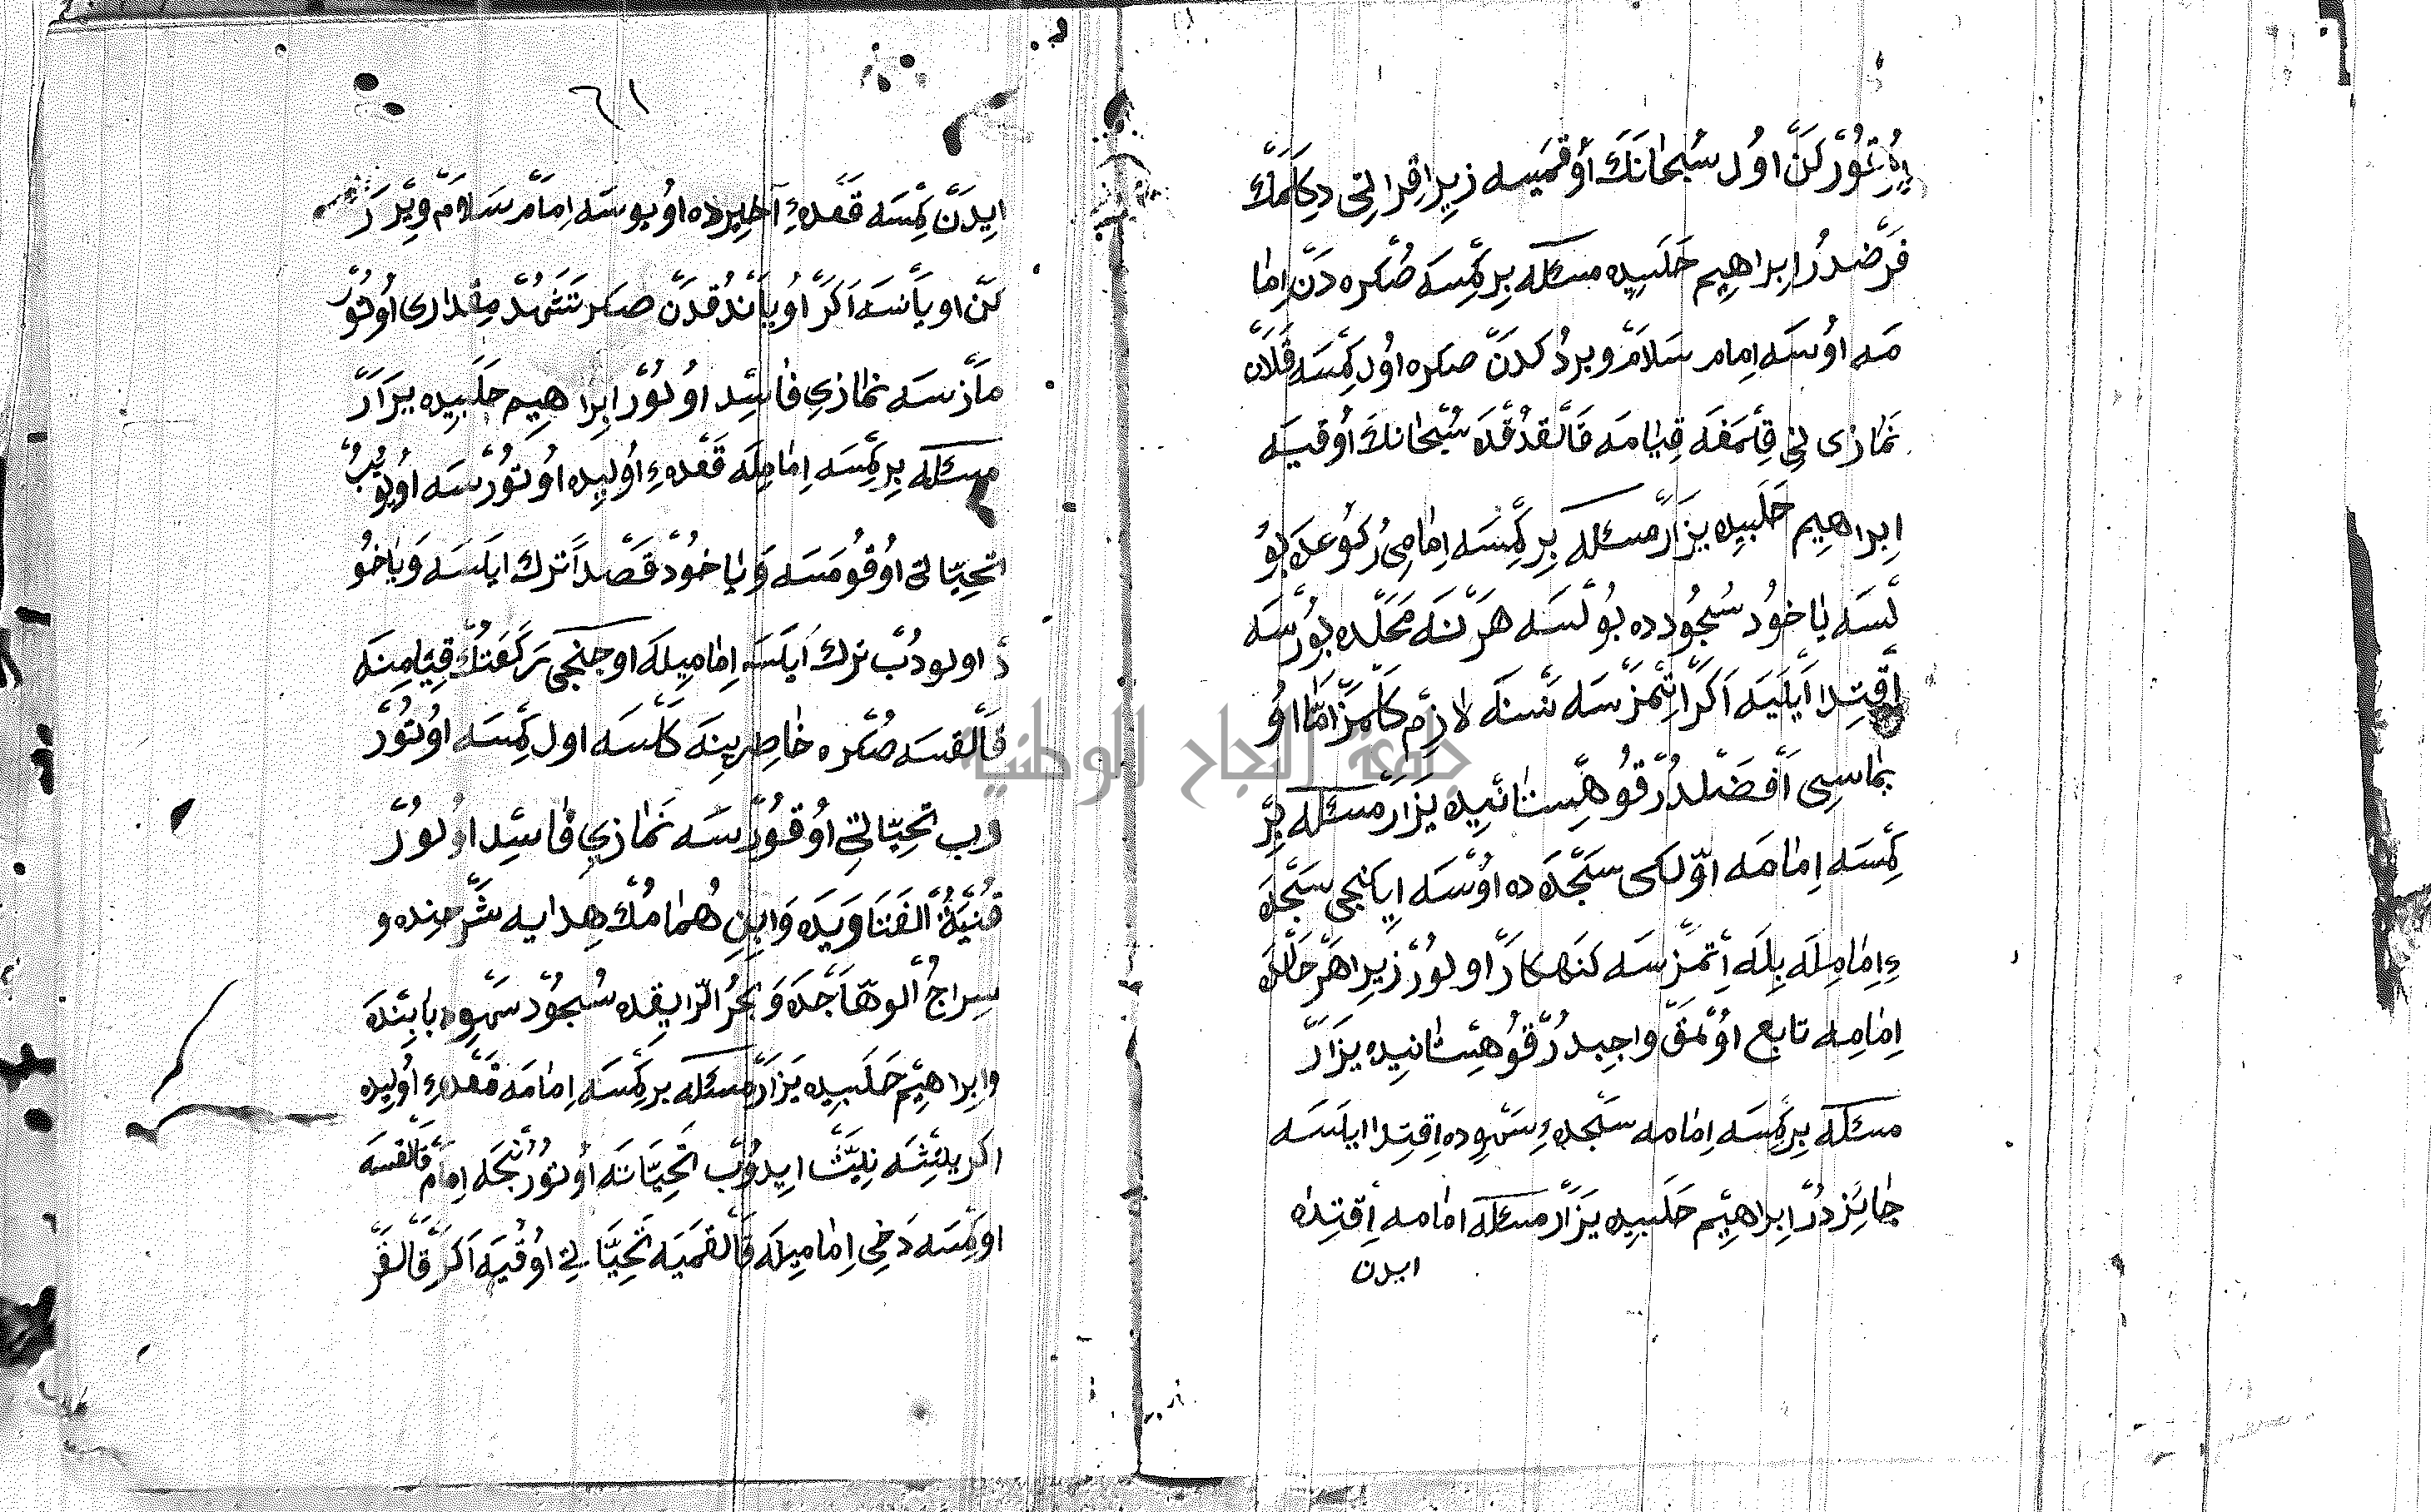 كَنَّ اوُل سُبْحَانَكَ اُوقمَيسه زيرا قرالتى دكلمك
فَرَّضدُرْ اِبراهِيم حَلَبِيده مسئله بِر كِمْسَه صُكره دَنْ اِمٰا
مَه اوُسَه اِمام سَلَامْ ويردُكدنّ صكره اوُل كِمْسَه قَلَان
نَمٰازى نِى قِلْمَغَه قِيٰامَه قَالقدُقْدَه سُبْحٰانكَ اُوقيَه
اِبراهيم حَلَبيِده يزَارْ مسئله بِر كِمْسَه اِمٰامِى رُكوُعدَه بوُ
لْسَه يٰاخوُد سُجُودده بوُلْسَه هَرْ نَه مَحَلْده بوُرْسَه
اِقْتِدا اَيْلَيَه اَكَرْ اِتْمَزسَه نَسْنَه لٰازِم كَلْمَزْ اَمّا اوُ
يمٰاسِى اَفْضَلْدُرْ قُوهِسْتٰانيِده يَزَارْ مسئله بِرْ
كِمْسَه اِمٰامَه اوّلكى سَجْدَه ده اوُسَه اِيكنجى سَجْدَه
ءِ اِمٰامِلَه بِلَه اِتْمَزسَه كنَهكارْ اولوُرْ زِيرا هَرْ حَالده
اِمٰامِه تابع اوُلْمَقْ واجِبدُرْ قُوهِسْتٰانيِده يزَارْ
مسئله بِر كِمْسَه اِمٰامه سَجْدهءِ سَهْوِده اِقتِدا ايلَسَه
جٰائِزدُرْ اِبراهِيم حَلَبيِده يَزَارْ مسئله امٰامه اِقْتِدٰا
ايدن
٦١
ايدَنْ كِمْسَه قَعدهءِ آخِيرده اوُيوسَه اِمَامْ سَلامْ ويْررَ
كَنْ اويَانسَه اَكَرْ اوُيَاندُقدَنْ صكره تَشَهُّدْ مِقْدارى اوُتوُرْ
مَازسَه نَمٰازِي فٰاسِد اوُلوُرْ اِبراهِيم حَلَبيده يزَارْ
مسئله بِر كِمْسَه اِمٰامِلَه قَعْدهءِ اوُليِده اوُتوُرْسَه اوُيوُبْ
اَتحِيّاتى اوُقوُمَسَه وَيٰاخوُدْ قَصْداً ترك ايلَسَه وَيٰاخوُ
دْ اولودُبْ ترك اَيلَسَه اِمٰامِيلَه اوجنجى رَكْعَتُكْ قِيٰامِنَه
قَالْقسَه صُكره خٰاطِرينِه كَلْسَه اول كِمْسَه اوُتوُرْ
وُب اتحِيّاتي اوُقوُرسَه نَمٰازي فٰاسِد اوُلوُرْ
قُنْيَةُ الفَتاوٰيدَه وَابِنِ هُمٰامُكْ هِدايه شَرْحِنده و
سِراجُ الوهّاجْدَه وَبَحْرُ الرّايِقده سُجُودْ سَهْوِ بابِنْدَه
وابِراهِيم حَلَبيِده يَزَارْ مسئله بر كِمْسَه اِمٰامَه قَعدهءِ اوُليِده
اكر يتِشَه نِيَّتْ ايدوُبْ اتحِيّاتَه اوُتوُرُنْجَه اِمَامْ قَالْقسَه
او كِمْسَه دَخِى اِمٰامِيلَه قَالقمَيَه تَحِيّاتي اوُقُيَه اَكَرْ قَالقَرْ